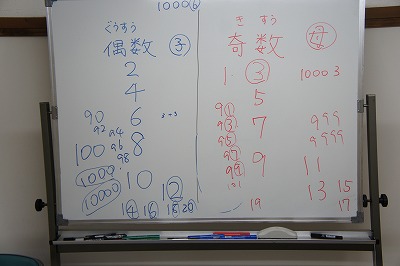 10006
ぐうすう
偶数 子
2
4
90 6 3+3
92 94
100 96 8
98
1000 10 12
10000
14 16 18 20
きすう
奇数 母
1 3 1000 3
5
91
93 7 999
95 9999
97 9 11
99
101 13 15
19 17